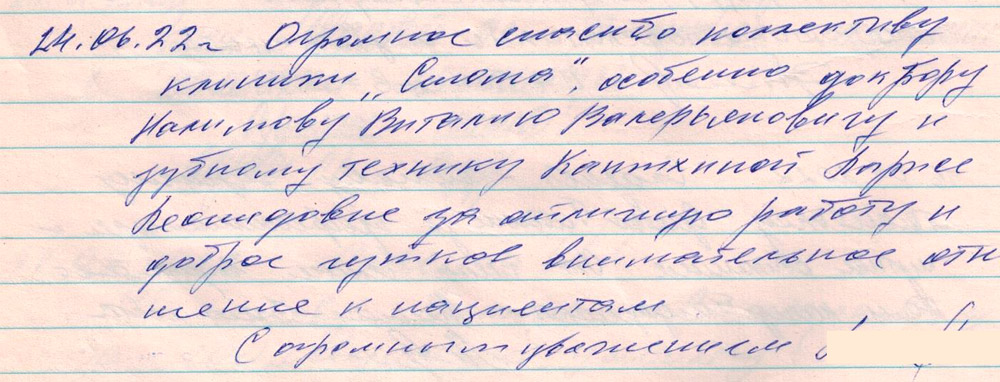 24.06.22г Огромное спасибо коллективу
клиники "Силома", особенно доктору
Налимову Виталию Валерьяновичу и
зубному технику Ларисе
Леонидовне за отличную работу и
доброе чуткое внимательное отн
шение к пациентам
С огромным уважением